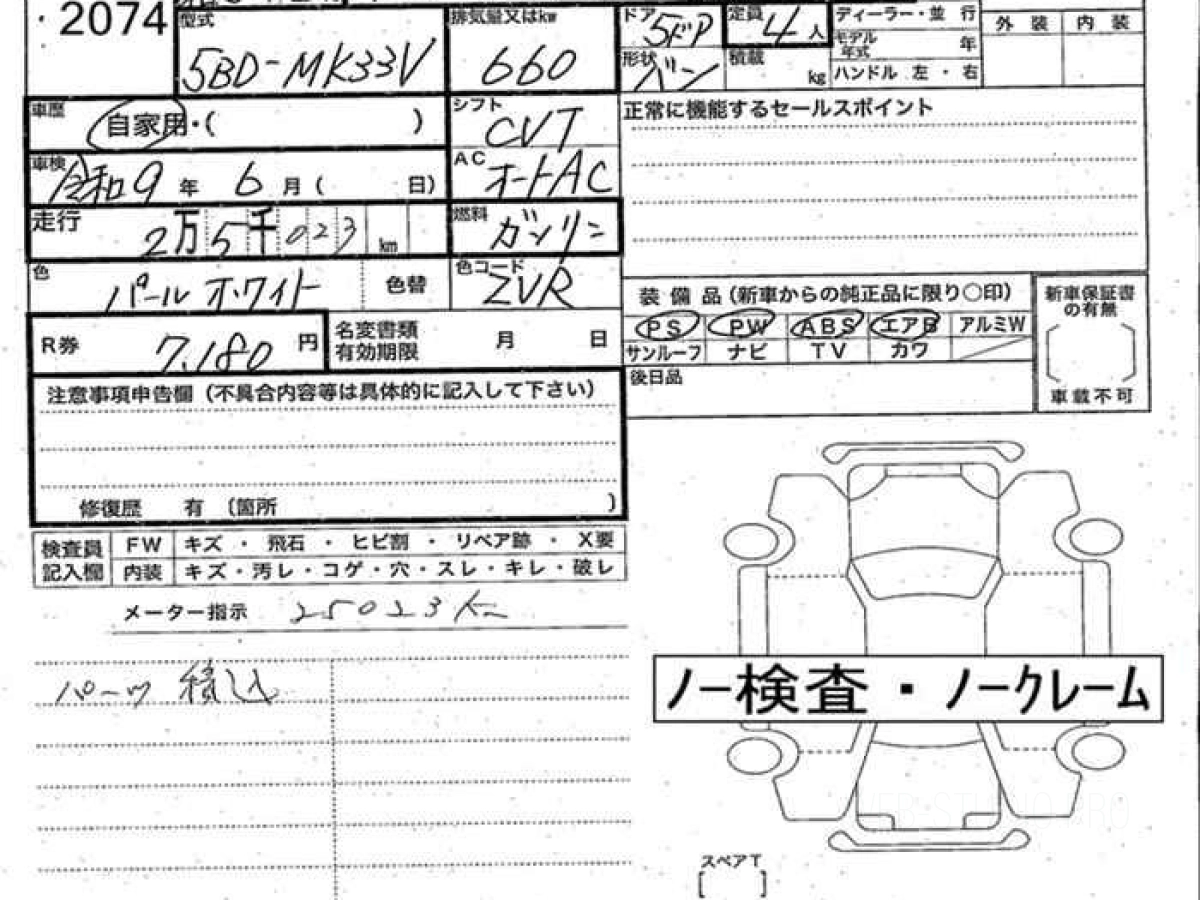 2074
型式
5BD-MK33V
排気量又はkw
660
ドア 5ドア
定員 4 人
形状 バン
積載 kg
ディーラー・並 行
モデル年式 年
ハンドル 左・右
外 装 内 装
車歴
自家用・( )
シフト
CVT
正常に機能するセールスポイント
車検
令和9 年 6 月 ( 日)
AC
オートAC
走行
2万5千023 km
燃料
ガソリン
色
パールホワイト
色替
色コード
ZVR
装備品 (新車からの純正品に限り○印)
PS PW ABS エアB アルミW
サンルーフ ナビ TV カワ
新車保証書
の有無
車載不可
R券
7,180 円
名変書類
有効期限
月 日
後日品
注意事項申告欄 (不具合内容等は具体的に記入して下さい)
修復歴 有 (箇所 )
検査員
記入欄
FW キズ ・ 飛石 ・ ヒビ割 ・ リペア跡 ・ X要
内装 キズ・汚レ・コゲ・穴・スレ・キレ・破レ
メーター指示 25023km
パーツ 積込
ノー検査・ノークレーム
スペアT